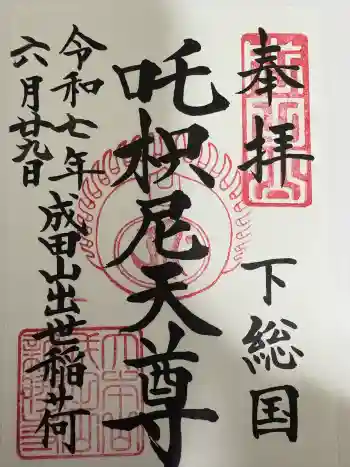 奉拝
下総国
吒枳尼天尊
成田山出世稲荷
令和七年
六月廿九日